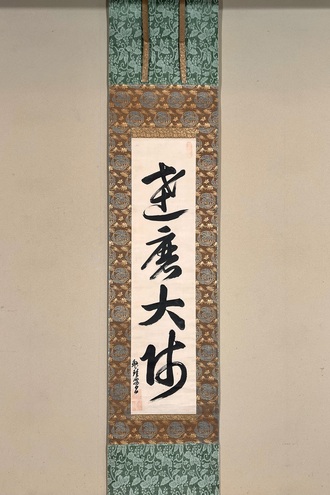 達磨大師